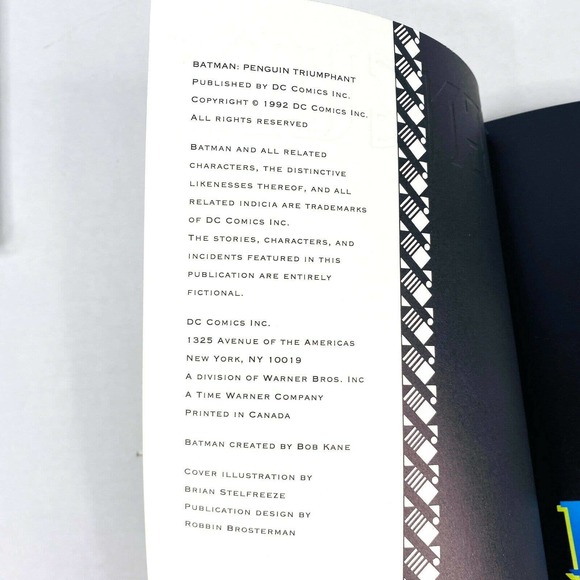 BATMAN: PENGUIN TRIUMPHANT
PUBLISHED BY DC COMICS INC.
COPYRIGHT © 1992 DC COMICS INC.
ALL RIGHTS RESERVED
BATMAN AND ALL RELATED
CHARACTERS, THE DISTINCTIVE
LIKENESSES THEREOF, AND ALL
RELATED INDICIA ARE TRADEMARKS
OF DC COMICS INC.
THE STORIES, CHARACTERS, AND
INCIDENTS FEATURED IN THIS
PUBLICATION ARE ENTIRELY
FICTIONAL.
DC COMICS INC.
1325 AVENUE OF THE AMERICAS
NEW YORK, NY 10019
A DIVISION OF WARNER BROS. INC
A TIME WARNER COMPANY
PRINTED IN CANADA
BATMAN CREATED BY BOB KANE
COVER ILLUSTRATION BY
BRIAN STELFREEZE
PUBLICATION DESIGN BY
ROBBIN BROSTERMAN